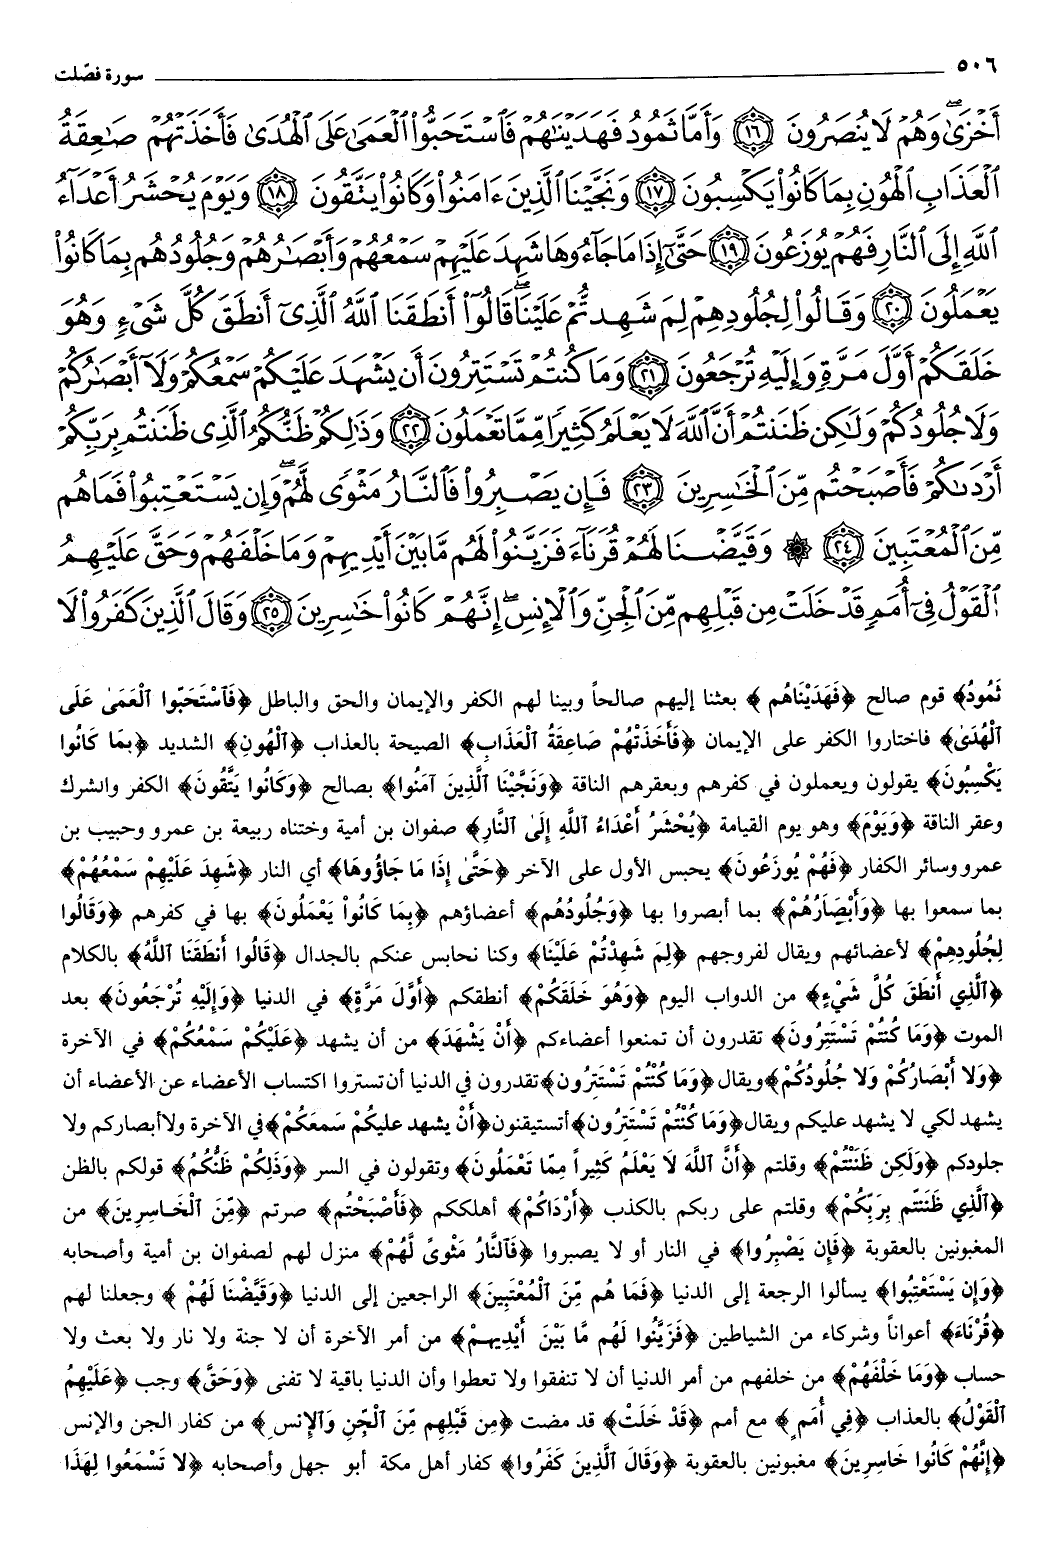 ٥٠٦ سورة فصّلت
أَخْزَىٰ ۖ وَهُمْ لَا يُنصَرُونَ ﴿١٦﴾ وَأَمَّا ثَمُودُ فَهَدَيْنَاهُمْ فَٱسْتَحَبُّوا۟ ٱلْعَمَىٰ عَلَى ٱلْهُدَىٰ فَأَخَذَتْهُمْ صَاعِقَةُ
ٱلْعَذَابِ ٱلْهُونِ بِمَا كَانُوا۟ يَكْسِبُونَ ﴿١٧﴾ وَنَجَّيْنَا ٱلَّذِينَ ءَامَنُوا۟ وَكَانُوا۟ يَتَّقُونَ ﴿١٨﴾ وَيَوْمَ يُحْشَرُ أَعْدَآءُ
ٱللَّهِ إِلَى ٱلنَّارِ فَهُمْ يُوزَعُونَ ﴿١٩﴾ حَتَّىٰٓ إِذَا مَا جَآءُوهَا شَهِدَ عَلَيْهِمْ سَمْعُهُمْ وَأَبْصَارُهُمْ وَجُلُودُهُم بِمَا كَانُوا۟
يَعْمَلُونَ ﴿٢٠﴾ وَقَالُوا۟ لِجُلُودِهِمْ لِمَ شَهِدتُّمْ عَلَيْنَا ۖ قَالُوٓا۟ أَنطَقَنَا ٱللَّهُ ٱلَّذِىٓ أَنطَقَ كُلَّ شَىْءٍ وَهُوَ
خَلَقَكُمْ أَوَّلَ مَرَّةٍ وَإِلَيْهِ تُرْجَعُونَ ﴿٢١﴾ وَمَا كُنتُمْ تَسْتَتِرُونَ أَن يَشْهَدَ عَلَيْكُمْ سَمْعُكُمْ وَلَآ أَبْصَارُكُمْ
وَلَا جُلُودُكُمْ وَلَٰكِن ظَنَنتُمْ أَنَّ ٱللَّهَ لَا يَعْلَمُ كَثِيرًا مِّمَّا تَعْمَلُونَ ﴿٢٢﴾ وَذَٰلِكُمْ ظَنُّكُمُ ٱلَّذِى ظَنَنتُم بِرَبِّكُمْ
أَرْدَىٰكُمْ فَأَصْبَحْتُم مِّنَ ٱلْخَٰسِرِينَ ﴿٢٣﴾ فَإِن يَصْبِرُوا۟ فَٱلنَّارُ مَثْوًى لَّهُمْ ۖ وَإِن يَسْتَعْتِبُوا۟ فَمَا هُم
مِّنَ ٱلْمُعْتَبِينَ ﴿٢٤﴾ ۞ وَقَيَّضْنَا لَهُمْ قُرَنَآءَ فَزَيَّنُوا۟ لَهُم مَّا بَيْنَ أَيْدِيهِمْ وَمَا خَلْفَهُمْ وَحَقَّ عَلَيْهِمُ
ٱلْقَوْلُ فِىٓ أُمَمٍ قَدْ خَلَتْ مِن قَبْلِهِم مِّنَ ٱلْجِنِّ وَٱلْإِنسِ ۖ إِنَّهُمْ كَانُوا۟ خَٰسِرِينَ ﴿٢٥﴾ وَقَالَ ٱلَّذِينَ كَفَرُوا۟ لَا
ثَمُودُ﴾ قوم صالح ﴿فَهَدَيْنَاهُم﴾ بعثنا إليهم صالحاً وبينا لهم الكفر والإيمان والحق والباطل ﴿فَٱسْتَحَبّوا ٱلْعَمَىٰ عَلَى
ٱلْهُدَىٰ﴾ فاختاروا الكفر على الإيمان ﴿فَأَخَذَتْهُمْ صَاعِقَةُ ٱلْعَذَابِ﴾ الصيحة بالعذاب ﴿ٱلْهُونِ﴾ الشديد ﴿بِمَا كَانُوا
يَكْسِبُونَ﴾ يقولون ويعملون في كفرهم وبعقرهم الناقة ﴿وَنَجَّيْنَا ٱلَّذِينَ آمَنُوا﴾ بصالح ﴿وَكَانُوا يَتَّقُونَ﴾ الكفر والشرك
وعقر الناقة ﴿وَيَوْمَ﴾ وهو يوم القيامة ﴿يُحْشَرُ أَعْدَاءُ ٱللَّهِ إِلَىٰ ٱلنَّارِ﴾ صفوان بن أمية وختناه ربيعة بن عمرو وحبيب بن
عمرو وسائر الكفار ﴿فَهُمْ يُوزَعُونَ﴾ يحبس الأول على الآخر ﴿حَتَّىٰ إِذَا مَا جَاؤُوهَا﴾ أي النار ﴿شَهِدَ عَلَيْهِمْ سَمْعُهُمْ﴾
بما سمعوا بها ﴿وَأَبْصَارُهُمْ﴾ بما أبصروا بها ﴿وَجُلُودُهُم﴾ أعضاؤهم ﴿بِمَا كَانُوا يَعْمَلُونَ﴾ بها في كفرهم ﴿وَقَالُوا
لِجُلُودِهِمْ﴾ لأعضائهم ويقال لفروجهم ﴿لِمَ شَهِدْتُمْ عَلَيْنَا﴾ وكنا نحابس عنكم بالجدال ﴿قَالُوا أَنطَقَنَا ٱللَّهُ﴾ بالكلام
﴿ٱلَّذِي أَنطَقَ كُلَّ شَيْءٍ﴾ من الدواب اليوم ﴿وَهُوَ خَلَقَكُمْ﴾ أنطقكم ﴿أَوَّلَ مَرَّةٍ﴾ في الدنيا ﴿وَإِلَيْهِ تُرْجَعُونَ﴾ بعد
الموت ﴿وَمَا كُنتُمْ تَسْتَتِرُونَ﴾ تقدرون أن تمنعوا أعضاءكم ﴿أَنْ يَشْهَدَ﴾ من أن يشهد ﴿عَلَيْكُمْ سَمْعُكُمْ﴾ في الآخرة
﴿وَلَا أَبْصَارُكُمْ وَلَا جُلُودُكُمْ﴾ ويقال ﴿وَمَا كُنْتُمْ تَسْتَتِرُون﴾ تقدرون في الدنيا أن تستروا اكتساب الأعضاء عن الأعضاء أن
يشهد لكي لا يشهد عليكم ويقال ﴿وَمَا كُنْتُمْ تَسْتَتِرُون﴾ أتستيقنون ﴿أَنْ يشهد عليكُمْ سَمعَكُمْ﴾ في الآخرة ولا أبصاركم ولا
جلودكم ﴿وَلَكِن ظَنَنْتُمْ﴾ وقلتم ﴿أَنَّ ٱللَّهَ لَا يَعْلَمُ كَثِيراً مِمّا تَعْمَلُونَ﴾ وتقولون في السر ﴿وَذَلِكُمْ ظَنُّكُمُ﴾ قولكم بالظن
﴿ٱلَّذِي ظَنَنتُم بِرَبِّكُمْ﴾ وقلتم على ربكم بالكذب ﴿أَرْدَاكُمْ﴾ أهلككم ﴿فَأَصْبَحْتُم﴾ صرتم ﴿مِّنَ ٱلْخَاسِرِينَ﴾ من
المغبونين بالعقوبة ﴿فَإِن يَصْبِرُوا﴾ في النار أو لا يصبروا ﴿فَٱلنَّارُ مَثْوىً لَّهُمْ﴾ منزل لهم لصفوان بن أمية وأصحابه
﴿وَإِن يَسْتَعْتِبُوا﴾ يسألوا الرجعة إلى الدنيا ﴿فَمَا هُم مِّنَ ٱلْمُعْتَبِينَ﴾ الراجعين إلى الدنيا ﴿وَقَيَّضْنَا لَهُمْ﴾ وجعلنا لهم
﴿قُرْنَاءَ﴾ أعواناً وشركاء من الشياطين ﴿فَزَيَّنُوا لَهُم مَّا بَيْنَ أَيْدِيهِمْ﴾ من أمر الآخرة أن لا جنة ولا نار ولا بعث ولا
حساب ﴿وَمَا خَلْفَهُمْ﴾ من خلفهم من أمر الدنيا أن لا تنفقوا ولا تعطوا وأن الدنيا باقية لا تفنى ﴿وَحَقَّ﴾ وجب ﴿عَلَيْهِمُ
ٱلْقَوْلُ﴾ بالعذاب ﴿فِي أُمَمٍ﴾ مع أمم ﴿قَدْ خَلَتْ﴾ قد مضت ﴿مِن قَبْلِهِم مِّنَ ٱلْجِنِّ وَٱلإِنسِ﴾ من كفار الجن والإنس
﴿إِنَّهُمْ كَانُوا خَاسِرِينَ﴾ مغبونين بالعقوبة ﴿وَقَالَ ٱلَّذِينَ كَفَرُوا﴾ كفار أهل مكة أبو جهل وأصحابه ﴿لَا تَسْمَعُوا لِهَذَا